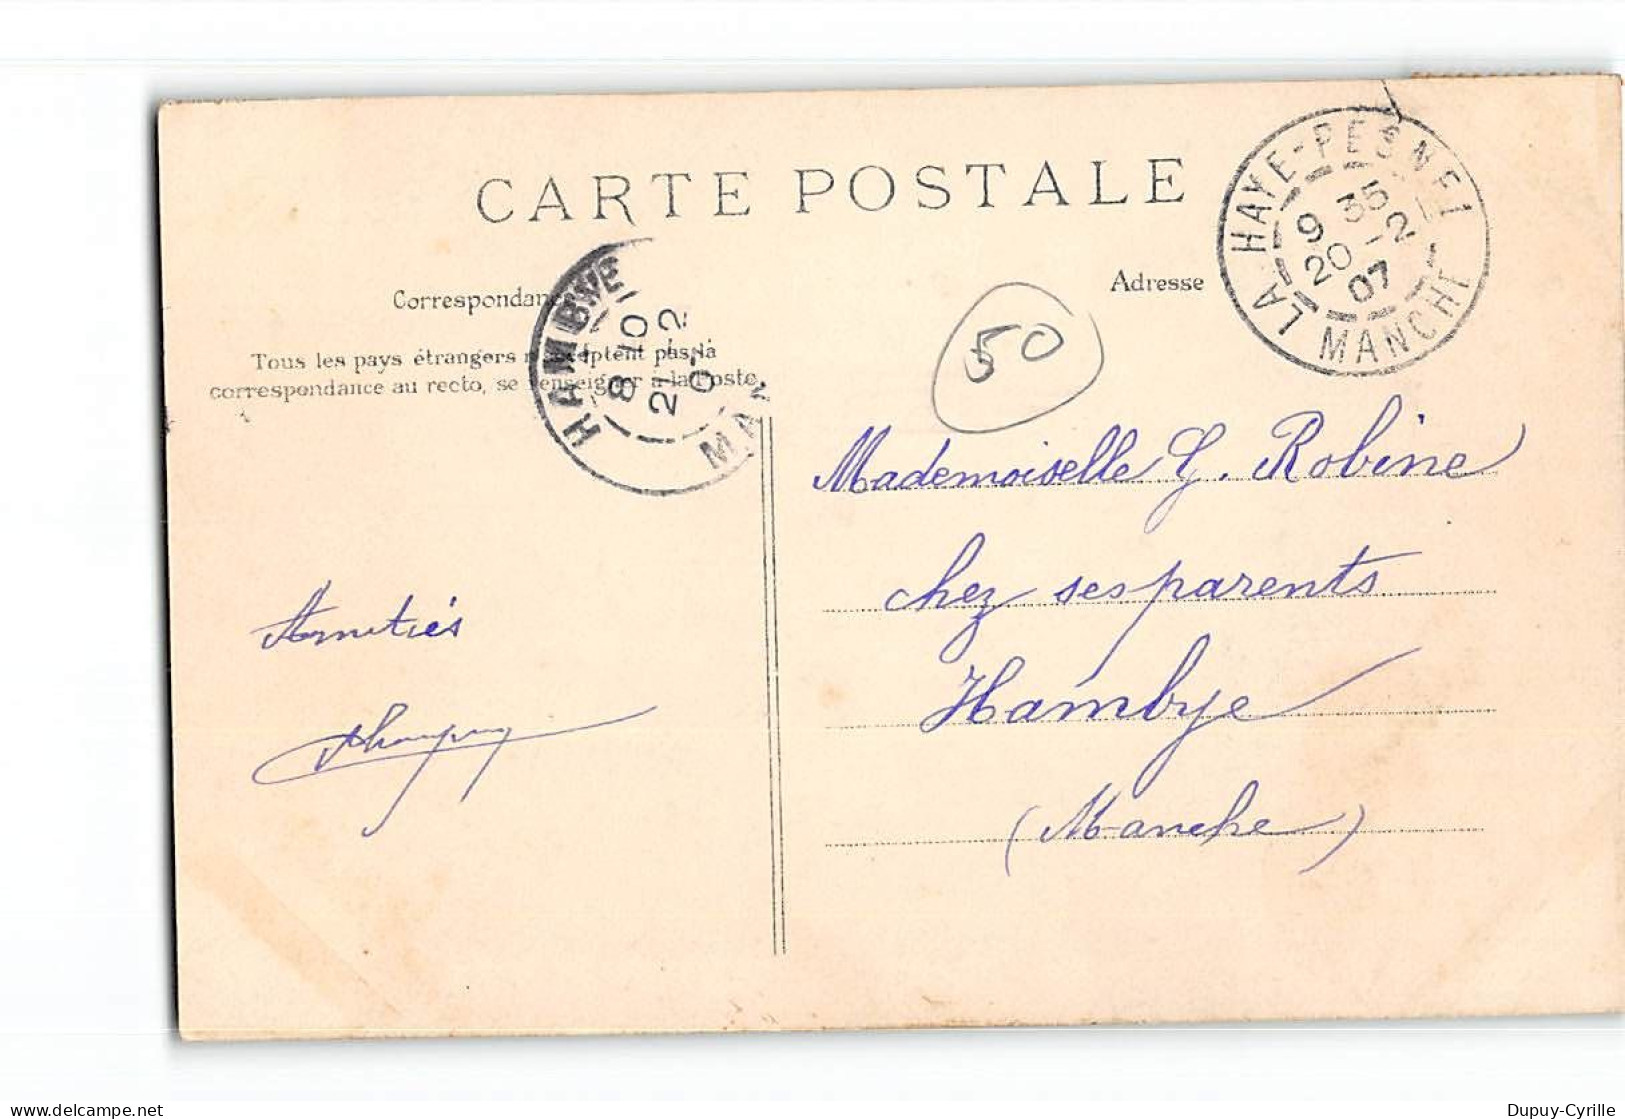 CARTE POSTALE
Correspondance
Adresse
Tous les pays étrangers n'acceptent pas la
correspondance au recto, se renseigner à la Poste
HAMBYE
8 10
21-2
07
MAN
LA HAYE-PESNEL
9 35
20-2
07
MANCHE
50
Mademoiselle G. Robine
chez ses parents
Hambye
(Manche)
Amitiés
delcampe.net
Dupuy-Cyrille